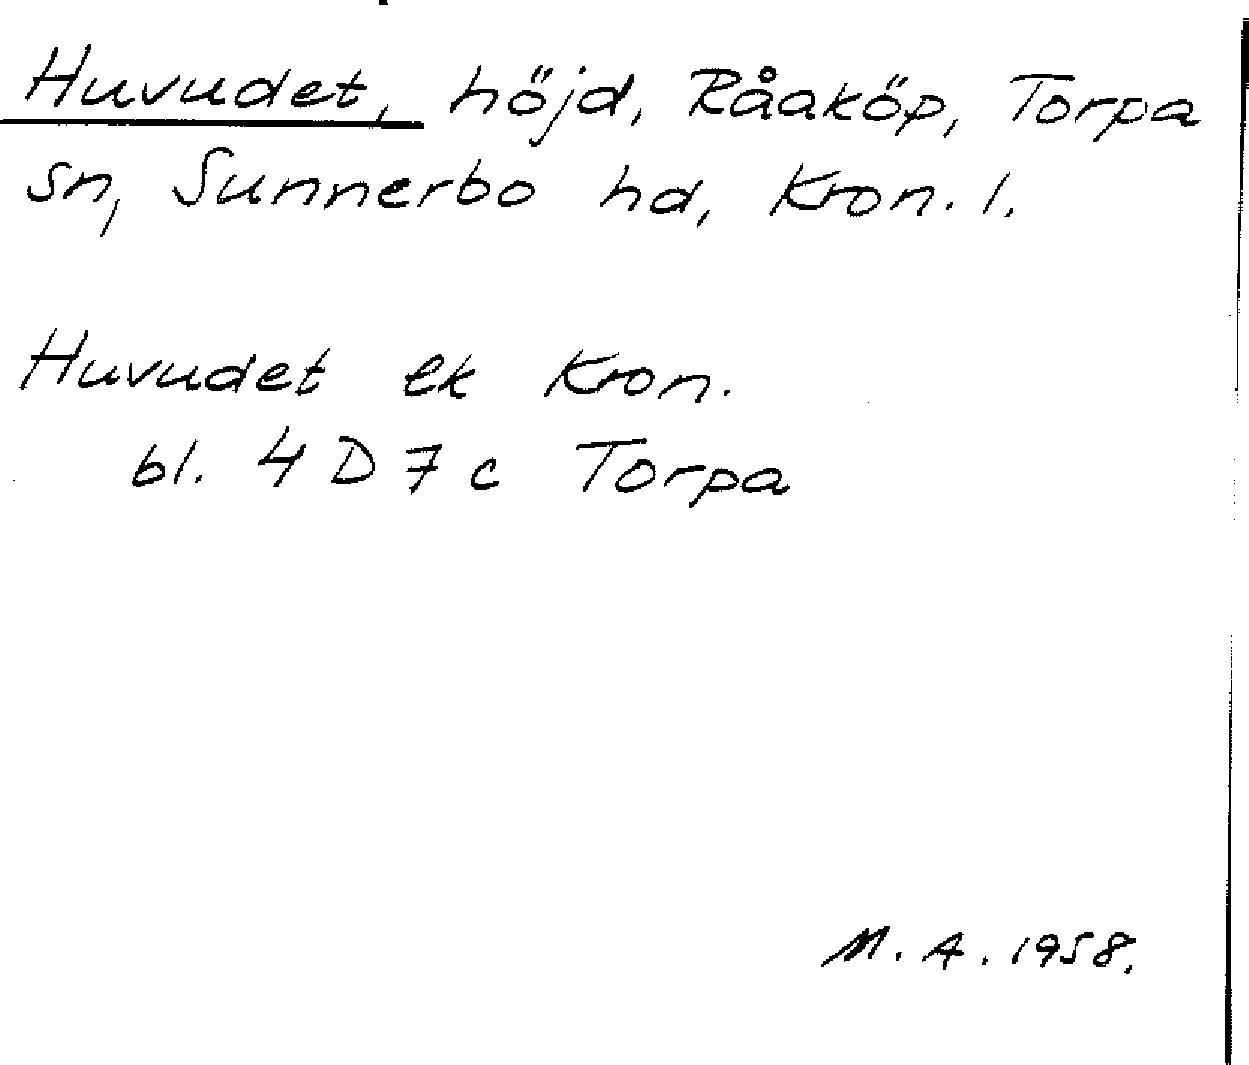 Huvudet, höjd, Råaköp, Torpa
sn, Sunnerbo hd, Kron. l.
Huvudet ek Kron.
bl. 4 D 7 c Torpa
M. A. 1958.